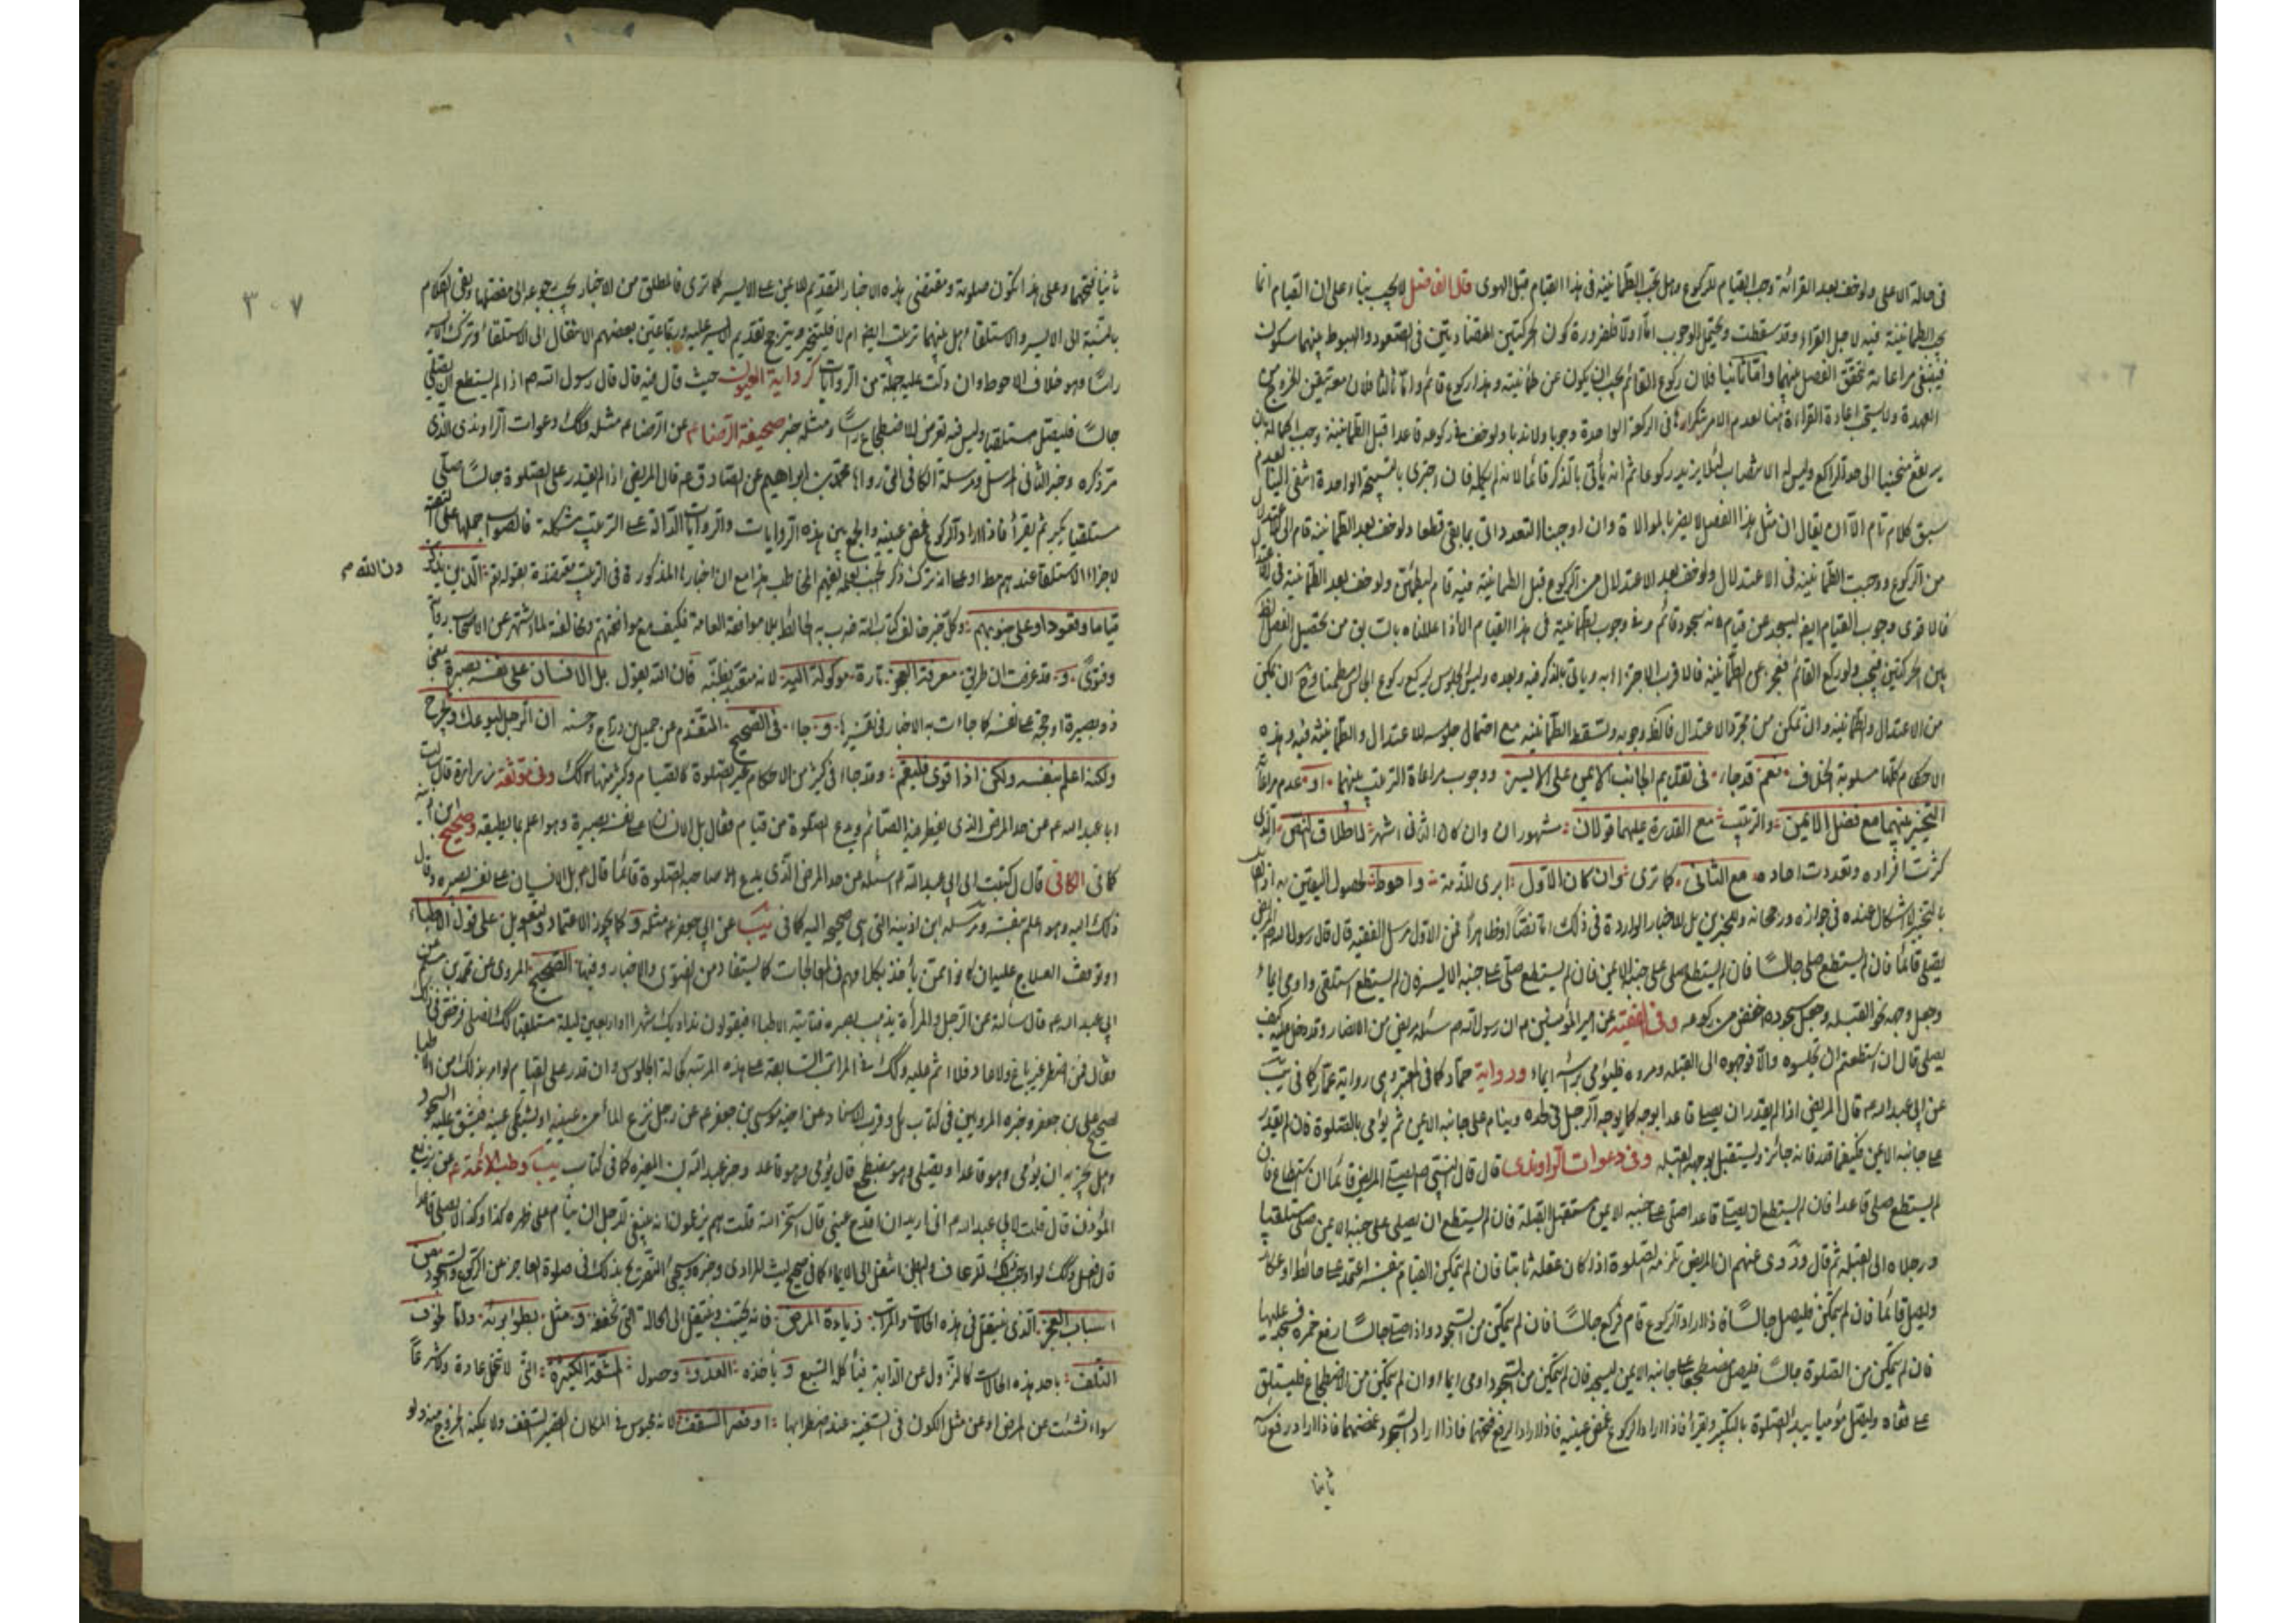 في حالة الاعلى ولو خف بعد القرائة وجب القيام للركوع وهل يجب الطمأنينة في هذا القيام قبل الهوى قال الفاضل لا يجب بناء على ان القيام انما
يجب الطمانينة فيه لاجل القراءة وقد سقطت ويحتمل الوجوب اما اولا فلضرورة كون الحركتين المتضادتين في الصعود والهبوط بينهما سكون
فينبغي مراعاته لتحقق الفصل بينهما واما ثانيا فلان ركوع القائم يجب ان يكون عن طمأنينة وهذا ركوع قائم واما ثالثا فلان معه تيقن الخروج من
العهدة ولا يستحب اعادة القراءة هنا لعدم الامر بتكرارها في الركعة الواحدة وجوبا ولا ندبا ولو خف في ركوعه قاعدا قبل الطمانينة وجب اكماله بان
يرتفع منحنيا الى حد الراكع وليس له الانتصاب لئلا يزيد ركوعا ثم انه يأتي بالذكر قائما لانه لم يكمله فان اجتزى بالتسبيحة الواحدة
سبق كلام تام الا ان يقال ان مثل هذا الفصل لا يضر بالموالاة وان اوجبنا التعدد اتى بما بقى قطعا ولو خف بعد الطمانينة قام الى الاعتدال
من الركوع ووجبت الطمانينة في الاعتدال ولو خف بعد الاعتدال من الركوع قبل الطمانينة فيه قام ليطمئن ولو خف بعد الطمانينة في الاعتدال
فالاقوى وجوب القيام ايضا ليسجد عن قيام فانه سجود قائم وفي وجوب الطمانينة في هذا القيام الا اذا عللناه بالسابق من تحصيل الفصل الظاهر
بين الحركتين فيجب ولو ركع القائم فعجز عن الطمانينة فالاقرب الاجتزاء به وياتي بالذكر فيه وبعده وليس له الجلوس ليركع ركوع الجالس مطمئنا
من الاعتدال والطمانينة وان تمكن من مجرد الاعتدال فالظاهر وجوبه وتسقط الطمانينة مع احتمال جلوسه للاعتدال والطمانينة فيه وهذه
الاحكام كلها مسلوبة الخلاف نعم قد جاء في تقديم الجانب الايمن على الايسر ووجوب مراعاة الترتيب بينهما او عدم مراعاته
التخيير بينهما مع فضل الايمن والترتيب مع القدرة عليهما قولان مشهوران وان كان الثاني اشهر لاطلاق النص الذي
كثرت افراده وتعددت احاده مع الثاني كما ترى وان كان الاول ابرى للذمة واحوط لحصول اليقين به
بالتخيير لا اشكال عنده في جوازه ورجحانه وللمخيرين بل الاخبار الواردة في ذلك اما نصّاً او ظاهراً فمن الاول مرسل الفقيه قال قال رسول الله م المريض
يصلي قائما فان لم يستطع صلى جالساً فان لم يستطع صلى على جنبه الايمن فان لم يستطع صلّى على جنبه الايسر فان لم يستطع استلقى واومى ايماء
وجعل وجهه نحو القبلة وجعل سجوده اخفض من ركوعه وفي الفقيه عن امير المؤمنين م ان رسول الله م سئله مريض من الانصار وقد دخل عليه كيف
يصلي قال ان استطعتم ان تجلسوه والا فوجهوه الى القبلة ومروه فليؤمي برأسه ايماء ورواية حماد كما في المعتبر وهي رواية عمار كما في يب
عن ابي عبد الله ع قال المريض اذا لم يقدر ان يصلي قاعدا يوجه كما يوجه الرجل في لحده وينام على جانبه الايمن ثم يؤمي بالصلوة فان لم يقدر
على جانبه الايمن فكيفما قدر فانه جائز ويستقبل بوجهه القبلة وفي دعوات الراوندي قال قال النبي ص يصلي المريض قائما ان استطاع فان
لم يستطع صلى قاعدا فان لم يستطع ان يصلي قاعدا صلى على جنبه الايمن مستقبل القبلة فان لم يستطع ان يصلي على جنبه الايمن صلى مستلقيا
ورجلاه الى القبلة ثم قال وروى عنهم ان المريض تلزمه الصلوة اذا كان عقله ثابتا فان لم يتمكن القيام بنفسه اعتمد على حائط او عكازة
وليصل قائما فان لم يتمكن فليصل جالساً فاذا اراد الركوع قام فركع جالساً فان لم يتمكن من السجود واذا صلى جالساً رفع خمره فسجد عليها
فان لم يتمكن من الصلوة جالسا فليصل مضطجعا على جانبه الايمن ليسجد فان لم يتمكن من السجود اومى ايماء وان لم يتمكن من الاضطجاع فليستلق
على قفاه وليصل مؤميا يبدأ الصلوة بالتكبير ويقرأ فاذا اراد الركوع غمض عينيه فاذا اراد الرفع فتحهما فاذا اراد السجود غمضهما فاذا اراد رفع رأسه
ثانيا
٣٠٧
ثانيا فتحهما وعلى هذا تكون صلوته ومقتضى هذه الاخبار التقديم للايمن على الايسر كما ترى فالمطلق من الاخبار يجب رجوعه الى مفصلها وبقي الكلام
بالنسبة الى الايسر والاستلقاء وهل بينهما ترتيب ايضا ام لا فليتخير ويترجح تقديم الايسر عليه وربما عين بعضهم الانتقال الى الاستلقاء وترك الايسر
راساً وهو خلاف الاحوط وان دلت عليه جملة من الروايات كرواية العيون حيث قال فيه قال قال رسول الله م اذا لم يستطع ان يصلي
جالساً فليصل مستلقيا وليس فيه تعرض للاضطجاع راساً ومثله خبر صحيفة الرضا ع عن الرضا ع مثله وكذلك دعوات الراوندي الذي
مر ذكره وخبر الثاني المرسل ومرسلة الكافي التي رواها محمد بن ابراهيم عن الصادق ع قال المريض اذا لم يقدر على الصلوة جالساً صلى
مستلقيا يكبر ثم يقرأ فاذا اراد الركوع غمض عينيه والجمع بين هذه الروايات والروايات الدالة على الترتيب مشكلة فالصواب حملها على التقية
لاجزاء الاستلقاء عندهم مطلقا وعلى انه ترك ذكر الجنب لعلمه بفهم المخاطب هذا مع ان اخبارنا المذكورة في الترتيب معتضدة بقوله تع الذين يذكرون الله م
قياما وقعودا وعلى جنوبهم وكل خبر خالف كتاب الله ضرب به الحائط بلا موافقة العامة فكيف مع موافقتهم ومخالفته لما اشتهر عن الاصحاب رواية
وفتوىً و قد عرفت ان طريق معرفة العجز تارة موكولة اليه لانه متعبد بظنه فان الله يقول بل الانسان على نفسه بصيرة يعني
ذو بصيرة او حجة على نفسه كما جاءت به الاخبار في تفسيرها و جاء في الصحيح المتقدم عن جميل بن دراج وحسنه ان الرجل ليوعك ويحرج
ولكنه اعلم بنفسه ولكن اذا قوى فليقم وقد جاء في كثير من الاحكام غير الصلوة كالصيام وكثير منها كذلك وفي موثقة زرارة قال سالت
ابا عبد الله ع عن حد المرض الذي يفطر فيه الصائم ويدع الصلوة من قيام فقال بل الانسان على نفسه بصيرة وهو اعلم بما يطيقه وصحيح ابن اذينة
كما في الكافي قال كتبت الى ابي عبد الله م اسئله عن حد المرض الذي يدع صاحبه الصلوة قائما قال م بل الانسان على نفسه بصيرة وقال
ذلك اليه وهو اعلم بنفسه ومرسلة ابن اذينة التي هي صحيحه اليه كما في يب عن ابي جعفر ع مثله و كما يجوز الاعتماد والتعويل على قول الاطباء
او توقف العلاج عليه ان كانوا ممن يأخذ بكلامهم في المعالجات كما يستفاد من الفتوى والاخبار وفيها الصحيح المروى عن محمد بن مسلم عن
ابي عبد الله ع قال سألته عن الرجل والمرأة يذهب بصره فتأتيه الاطباء فيقولون نداويك شهرا او اربعين ليلة مستلقيا كذلك تصلي فرخص في ذلك
وقال فمن اضطر غير باغ ولا عاد فلا اثم عليه وكذلك في المراتب السابقة على هذه المرتبة كحالة الجلوس وان قدر على القيام لو امر بذلك من الاطباء
لصحيح علي بن جعفر وخبره المرويين في كتاب المسائل وقرب الاسناد عن اخيه موسى بن جعفر ع عن رجل نزع الماء من عينيه او يشتكي عينه فيشق عليه السجود
وهل يجزيه ان يؤمي وهو قاعد او يصلي وهو مضطجع قال يؤمي وهو قاعد وخبر عبد الله بن المغيرة كما في كتاب يب وطب الائمة ع عن بزيع
المؤذن قال قلت لابي عبد الله م اني اريد ان اقدح عيني قال استخر الله قلت هم يزعمون انه ينبغي للرجل ان ينام على ظهره كذا وكذا لا يصلي قاعدا
قال افعل وكذلك لو اوجب ذلك للرعاف والبطن انتقل الى الايماء كما في صحيح ليث المرادي وخبره وسيجئ التصريح بذلك في صلوة العاجز عن الركوع والسجود ومن
اسباب العجز الذي ينتقل في هذه الحالات والمراتب زيادة المرض فانه يجتنب وينتقل الى الحالة التي تخففه و مثل بطؤ برئه واما خوف
التلف باحد هذه الحالات كالنزول عن الدابة فيأكله السبع و يأخذه العدو وحصول المشقة الكثيرة التي لا تتحمل عادة وشرعاً
سواء نشئت عن المرض او عن مثل الكون في السفينة عند اضطرابها او قصر السقف لانه محبوس في المكان القصير السقف ولا يمكنه الخروج منه ولو